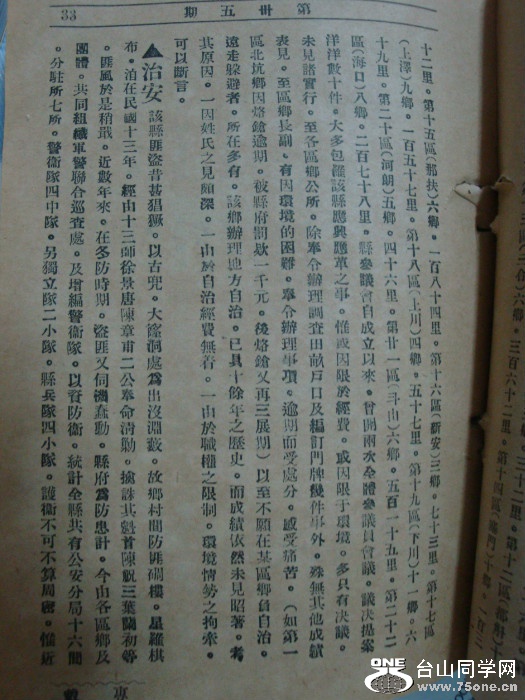 第卅五期
33
十二里。第十五區(那扶)六鄉。一百八十四里。第十六區(新安)三鄉。七十三里。第十七區
(上澤)九鄉。一百五十七里。第十八區(上川)四鄉。五十七里。第十九區(下川)十一鄉。六
十九里。第二十區(河朗)五鄉。四十六里。第廿一區(斗山)六鄉。五百一十五里。第二十二
區(海口)八鄉。二百七十八里。縣參議會自成立以來。曾開兩次全體參議員會議。議決提案
洋洋數十件。大多包羅該縣應興應革之事。惟或因限於經費。或因限于環境。多只有决議。
未見諸實行。至各區鄉公所。除奉令辦理調查田畝戶口及編訂門牌幾件事外。殊無其他成績
表見。至區鄉長副。有因環境的困難。奉令辦理事項。逾期而受處分。感受痛苦。(如第一
區北坑鄉因烙鎗逾期。被縣府罰欵一千元。後烙鎗又再三展期)以至不願在某區鄉負自治。
遠走躲避者。所在多有。該鄉辦理地方自治。已具十餘年之歷史。而成績依然未見昭著。考
其原因。一因姓氏之見頗深。一由於自治經費無着。一由於職權之限制。環境情勢之拘牽。
可以斷言。
▲治安 該縣匪盜昔甚猖獗。以古兜。大隆洞處爲出沒淵藪。故鄉村間防匪碉樓。星羅棋
布。洎在民國十三年。經由十三師徐景唐陳章甫二公奉命清勦。擒誅其魁首陳祝三葉蘭初等
。匪風於是稍戢。近數年來。在冬防時期。盜匪又伺機蠢動。縣府爲防患計。今由各區鄉及
團體。共同組織軍警聯合巡查處。及增編警衛隊。以資防衛。統計全縣共有公安分局十六間
。分駐所七所。警衛隊四中隊。另獨立隊二小隊。縣兵隊四小隊。護衛不可不算周密。惟近
三百六十二里。第十四區
十鄉。一百三
專
ONE
台山同学网
www.75one.cn